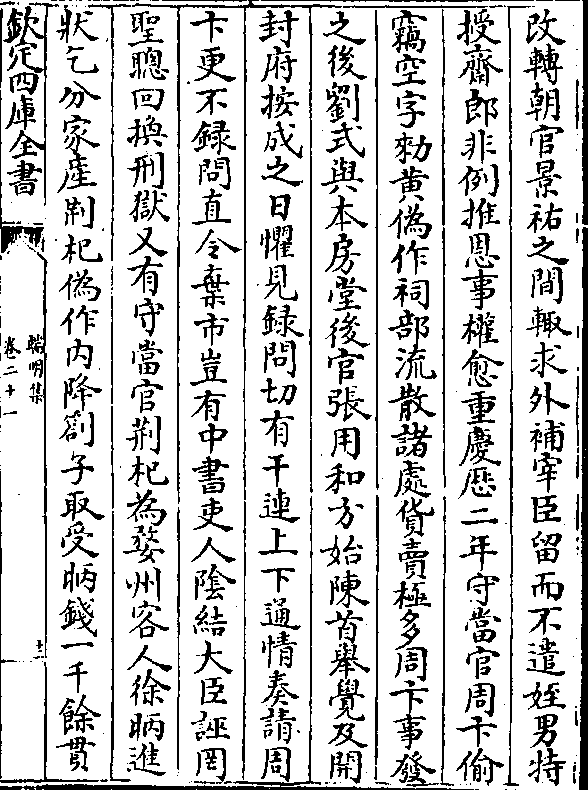 改轉朝官景祐之間輙求外補宰臣留而不遣姪男特
授齋郎非例推恩事權愈重慶厯二年守當官周卞偷
竊空字勑黄偽作祠部流散諸處貨賣極多周卞事發
之後劉式與本房堂後官張用和方始陳首舉覺及開
封府按成之日懼見録問切有干連上下通情奏請周
卞更不録問直令棄市豈有中書吏人隂結大臣誣罔
聖聰回換刑獄又有守當官荆杞為婺州客人徐昞進
狀乞分家産荆杞偽作内降劄子取受昞錢一千餘貫
欽定四庫全書
端明集
卷二十一
十二